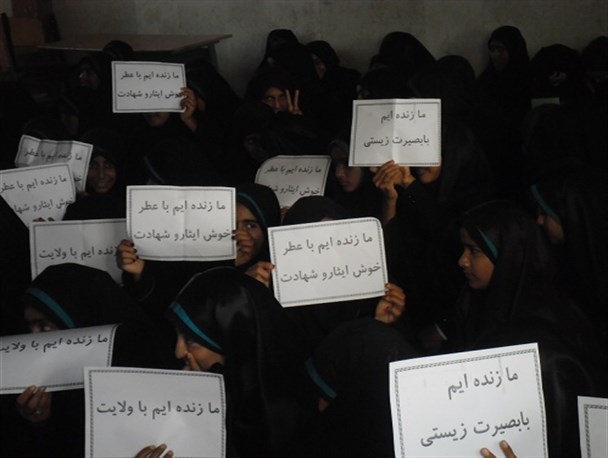 ما زنده ایم با عطر
خوش ایثارو شهادت
ما زنده ایم
بابصیرت زیستی
ما زنده ایم با عطر
خوش ایثارو شهادت
ما زنده ایم با عطر
خوش ایثارو شهادت
ما زنده ایم با عطر
خوش ایثارو شهادت
ما زنده ایم با ولایت
ما زنده ایم با عطر
خوش ایثارو شهادت
ما زنده ایم با ولایت
ما زنده ایم با ولایت
ما زنده ایم
بابصیرت زیستی